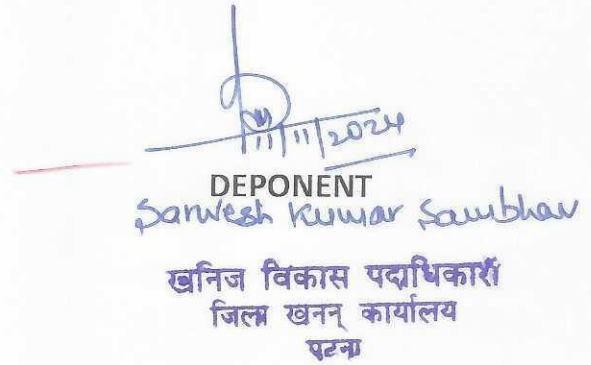 11/11/2024
DEPONENT
Sarwesh Kumar Sambhav
खनिज विकास पदाधिकारी
जिला खनन् कार्यालय
पटना